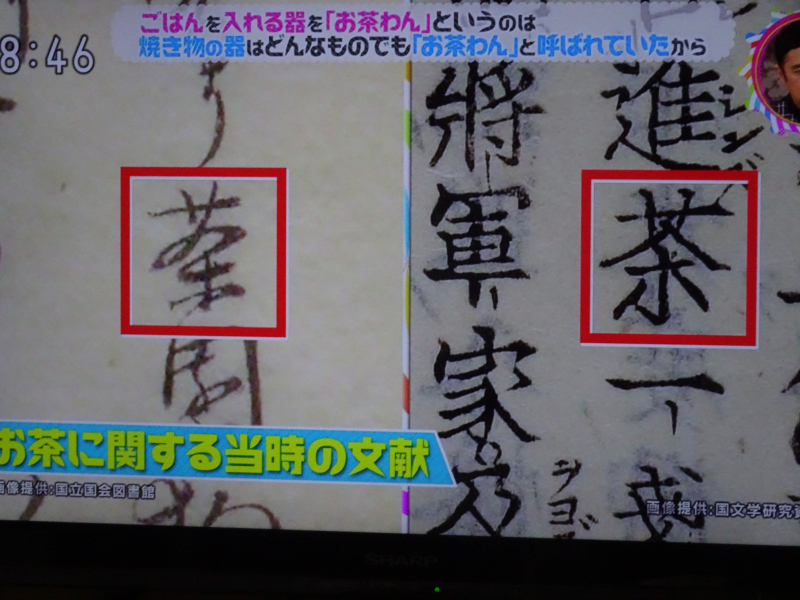 8:46
ごはんを入れる器を「お茶わん」というのは
焼き物の器はどんなものでも「お茶わん」と呼ばれていたから
進茶一
シン
將軍家乃
シヨ
茶園
お茶に関する当時の文献
画像提供:国立国会図書館
画像提供:国文学研究資
SHARP